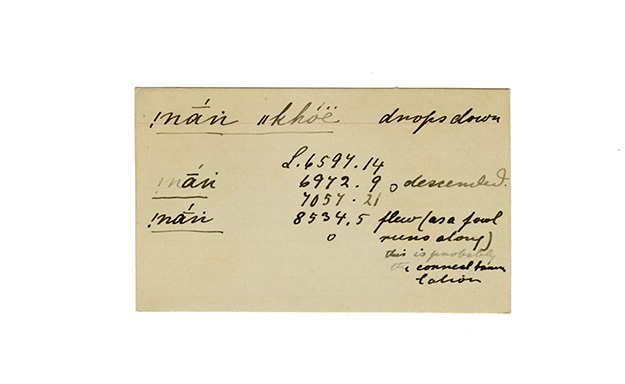 !nán ǁkhóë drops down
L. 6597.14
!nán 6972.9 descended.
7057.21
!nán 8534.5 flew (as a fowl
runs along)
this is probably
the correct trans
lation